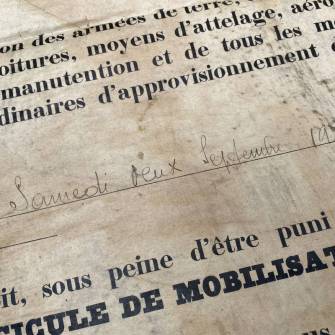 on des armées de terre,
oitures, moyens d'attelage, aéro
manutention et de tous les m
dinaires d'approvisionnement
Samedi deux Septembre
it, sous peine d'être puni
CICULE DE MOBILISAT